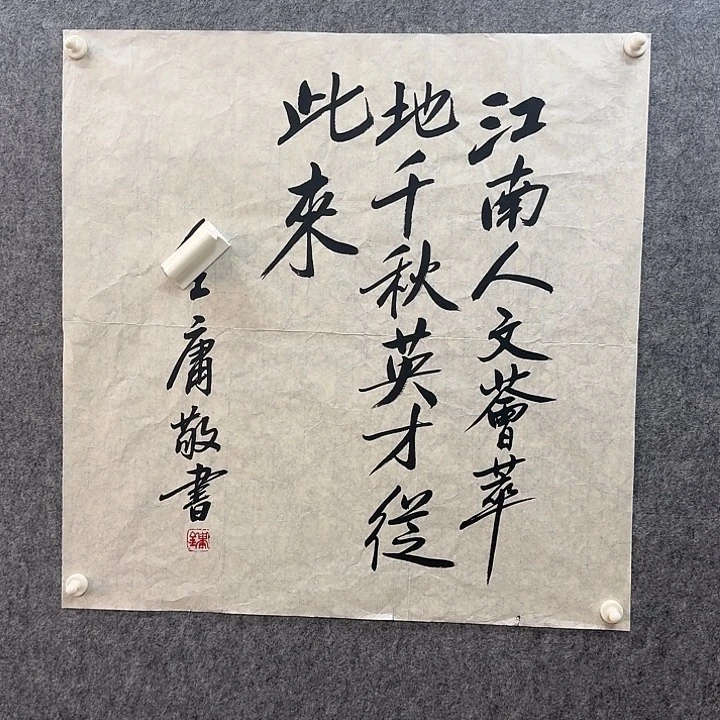 江南人文薈萃
地千秋英才從
此來
庸敬書